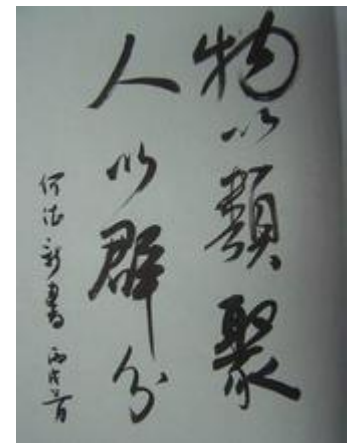 物以類聚
人以群分
何浩新書 丙戌首